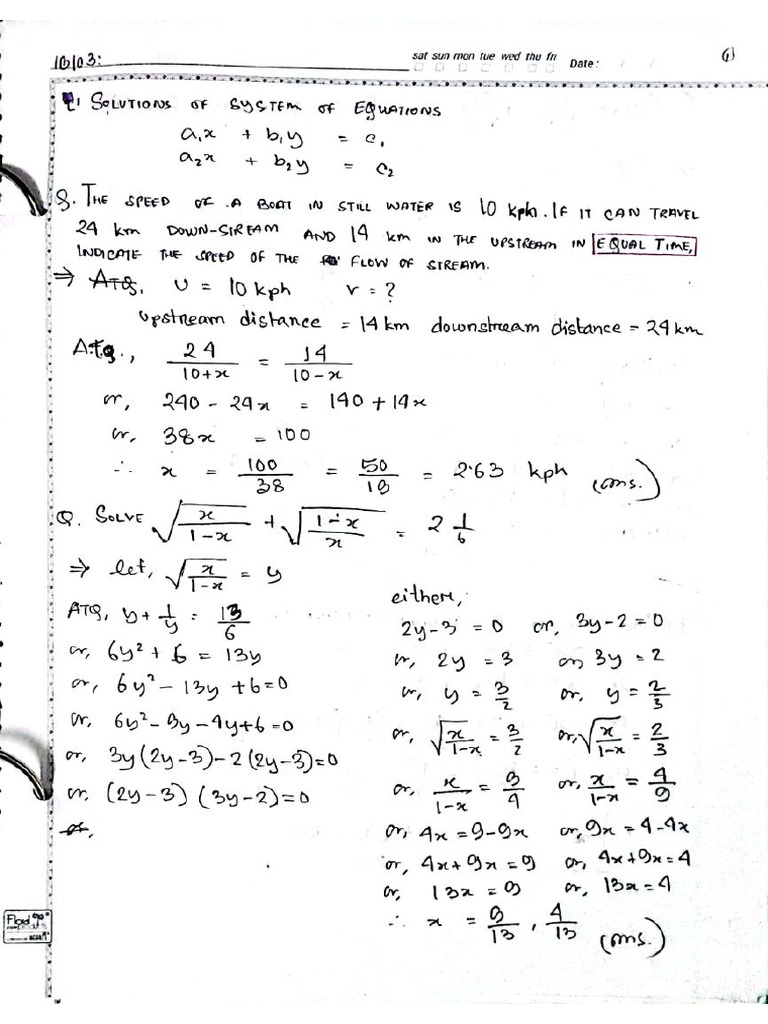 10/03:
sat sun mon tue wed thu fri Date: / /
(1)
SOLUTIONS OF SYSTEM OF EQUATIONS
a₁x + b₁y = c₁
a₂x + b₂y = c₂
Q. THE SPEED OF A BOAT IN STILL WATER IS 10 kph. IF IT CAN TRAVEL
24 km DOWN-STREAM AND 14 km IN THE UPSTREAM IN EQUAL TIME,
INDICATE THE SPEED OF THE FLOW OF STREAM.
⇒ ATQ, U = 10 kph v = ?
Upstream distance = 14 km downstream distance = 24 km
A.t.q., 24/(10+x) = 14/(10-x)
or, 240 - 24x = 140 + 14x
or, 38x = 100
∴ x = 100/38 = 50/19 = 2.63 kph (ans.)
Q. SOLVE √(x/(1-x)) + √((1-x)/x) = 2 1/6
⇒ let, √(x/(1-x)) = y
ATQ, y + 1/y = 13/6
or, 6y² + 6 = 13y
or, 6y² - 13y + 6 = 0
or, 6y² - 9y - 4y + 6 = 0
or, 3y(2y-3) - 2(2y-3) = 0
or, (2y-3) (3y-2) = 0
either,
2y-3 = 0 or, 3y-2 = 0
or, 2y = 3 or, 3y = 2
or, y = 3/2 or, y = 2/3
or, √(x/(1-x)) = 3/2 or, √(x/(1-x)) = 2/3
or, x/(1-x) = 9/4 or, x/(1-x) = 4/9
or, 4x = 9-9x or, 9x = 4-4x
or, 4x+9x = 9 or, 4x+9x = 4
or, 13x = 9 or, 13x = 4
∴ x = 9/13, 4/13 (ans.)